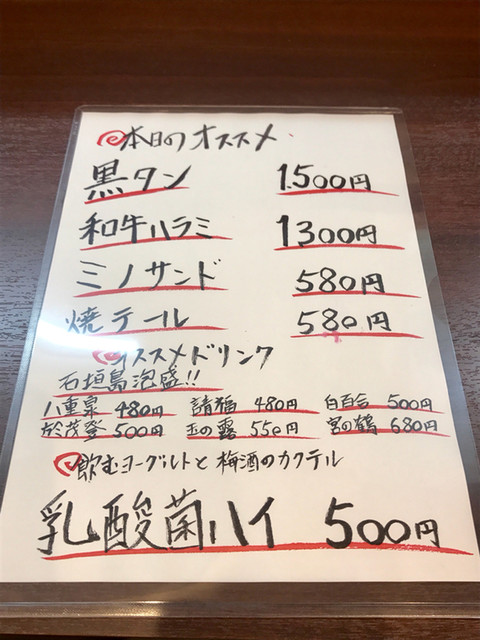 本日のオススメ
黒タン 1.500円
和牛ハラミ 1300円
ミノサンド 580円
焼テール 580円
オススメドリンク
石垣島泡盛!!
八重泉 480円 請福 480円 白百合 500円
於茂登 500円 玉の露 550円 宮の鶴 680円
飲むヨーグルトと梅酒のカクテル
乳酸菌ハイ 500円